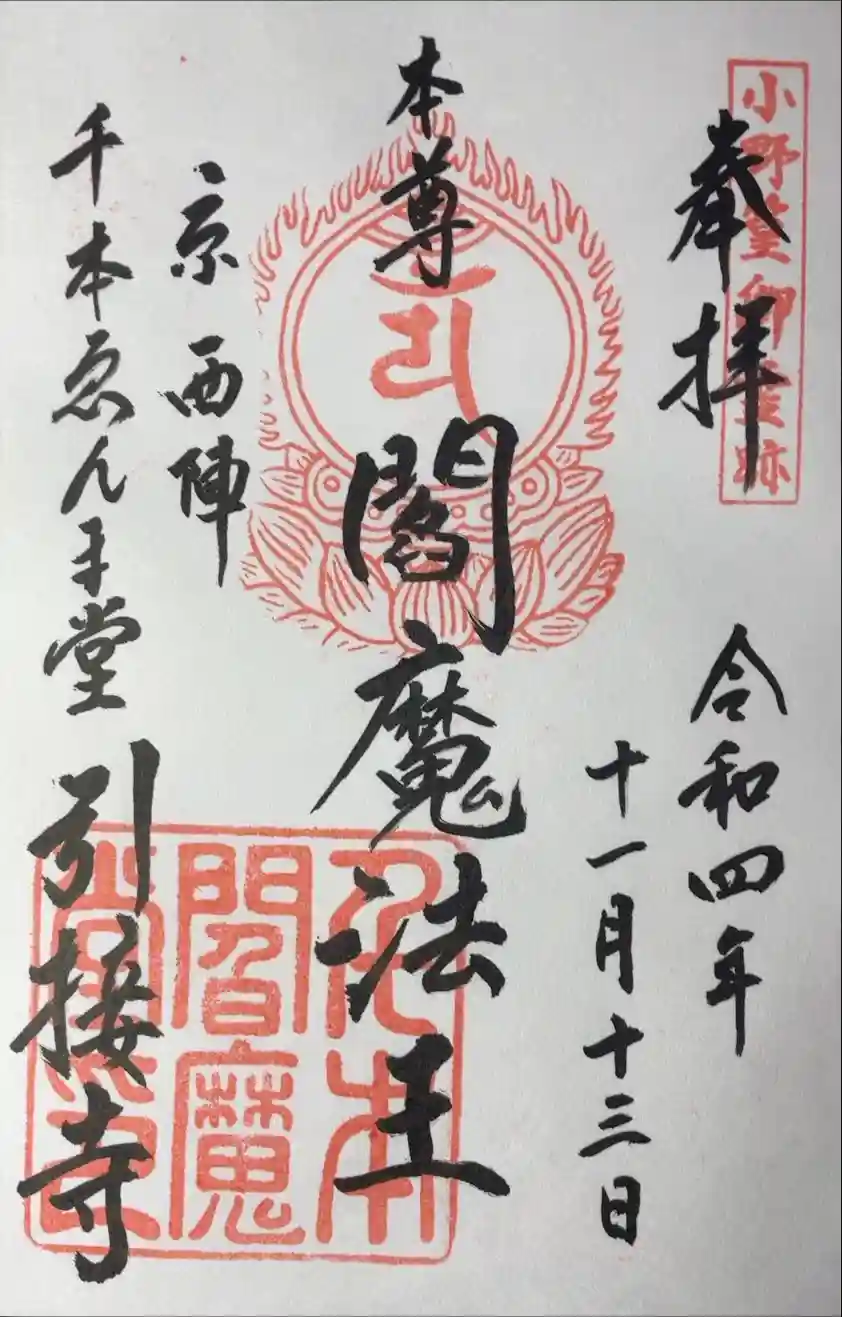 小野篁御霊跡
奉拝
令和四年
十一月十三日
本尊
閻魔法王
京 西陣
千本ゑんま堂
引接寺
千本
閻魔